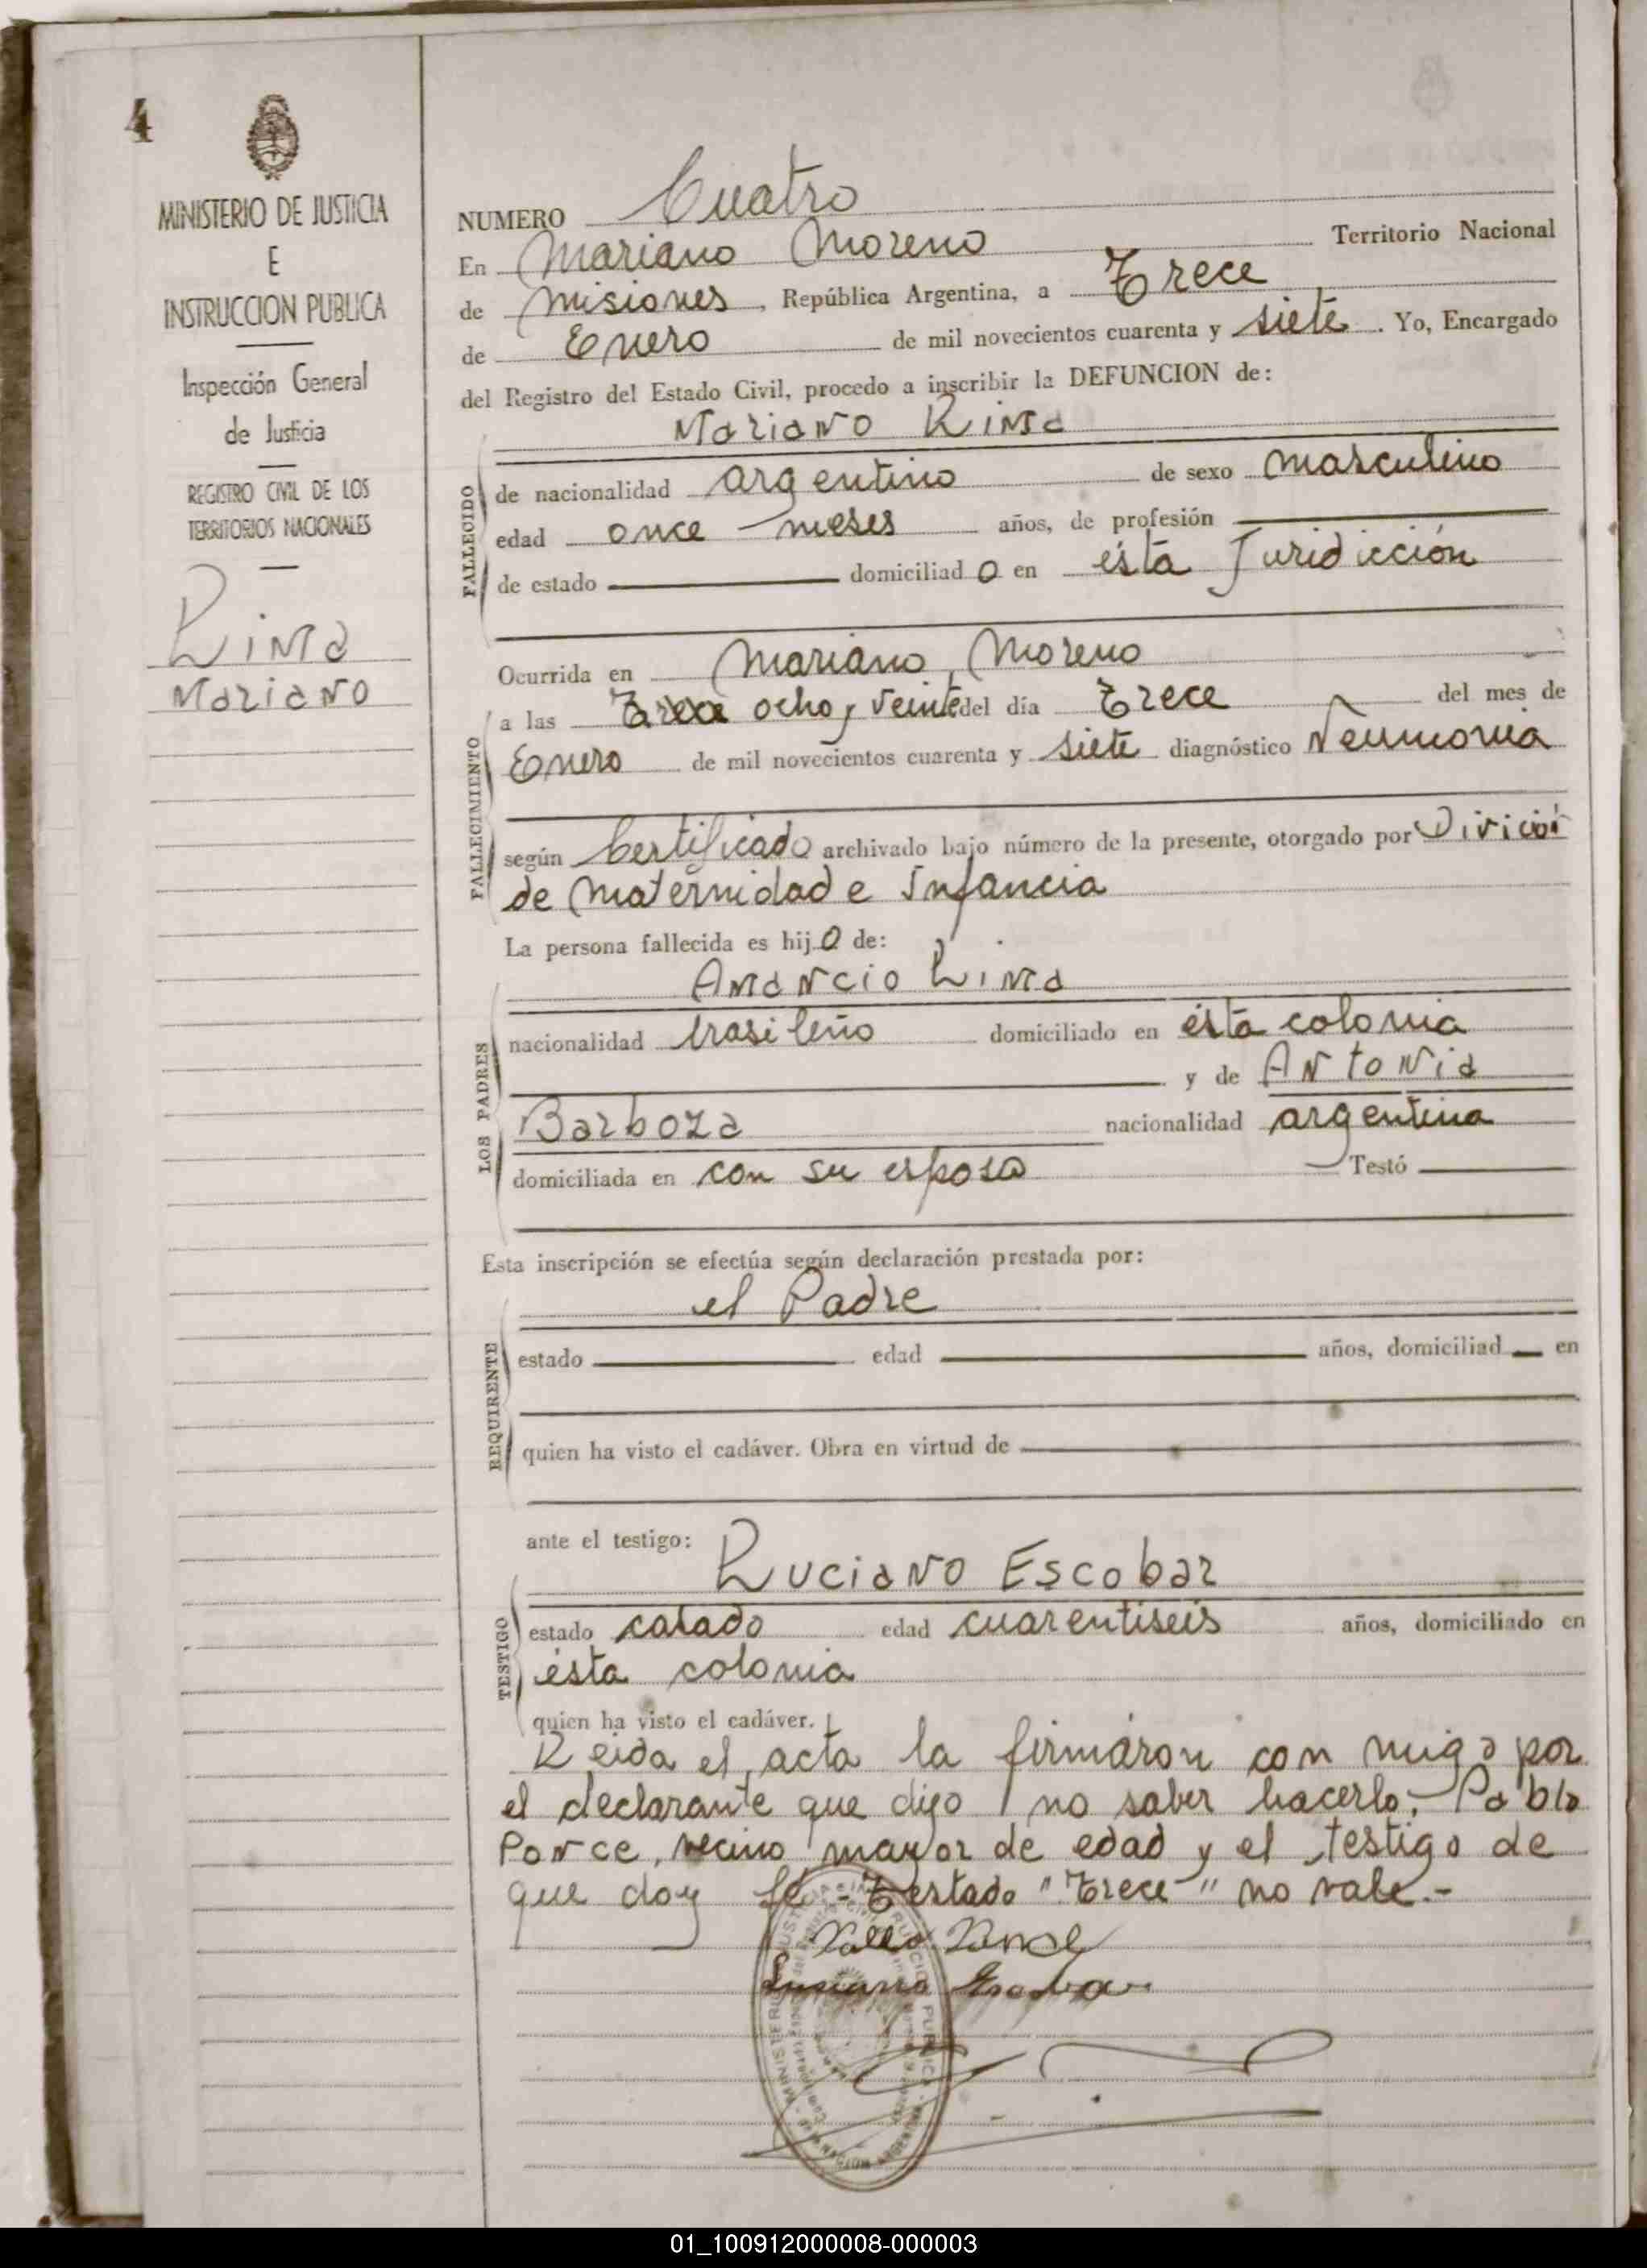 4
MINISTERIO DE JUSTICIA
E
INSTRUCCION PUBLICA
Inspección General
de Justicia
REGISTRO CIVIL DE LOS
TERRITORIOS NACIONALES
Lima
Mariano
NUMERO Cuatro
En Mariano Moreno Territorio Nacional
de Misiones, República Argentina, a Trece
de Enero de mil novecientos cuarenta y siete. Yo, Encargado
del Registro del Estado Civil, procedo a inscribir la DEFUNCION de:
Mariano Lima
FALLECIDO
de nacionalidad argentino de sexo masculino
edad once meses años, de profesión
de estado domiciliado en ésta Juridicción
Ocurrida en Mariano Moreno
FALLECIMIENTO
a las Trece ocho y veinte del día Trece del mes de
Enero de mil novecientos cuarenta y siete diagnóstico Neumonia
según Certificado archivado bajo número de la presente, otorgado por Divició
de Maternidad e Infancia
La persona fallecida es hijo de:
Amancio Lima
LOS PADRES
nacionalidad brasileño domiciliado en ésta colonia
y de Antonia
Barboza nacionalidad argentina
domiciliada en con su esposo Testó
Esta inscripción se efectúa según declaración prestada por:
el Padre
REQUIRENTE
estado edad años, domiciliad en
quien ha visto el cadáver. Obra en virtud de
ante el testigo:
Luciano Escobar
TESTIGO
estado casado edad cuarentiseis años, domiciliado en
ésta colonia
quien ha visto el cadáver.
Leida el acta la firmáron con migo por
el declarante que dijo no saber hacerlo; Pablo
Ponce, vecino mayor de edad y el testigo de
que doy fé - Testado "Trece" no vale.-
Pablo Ponce
Luciano Escobar
01_100912000008-000003